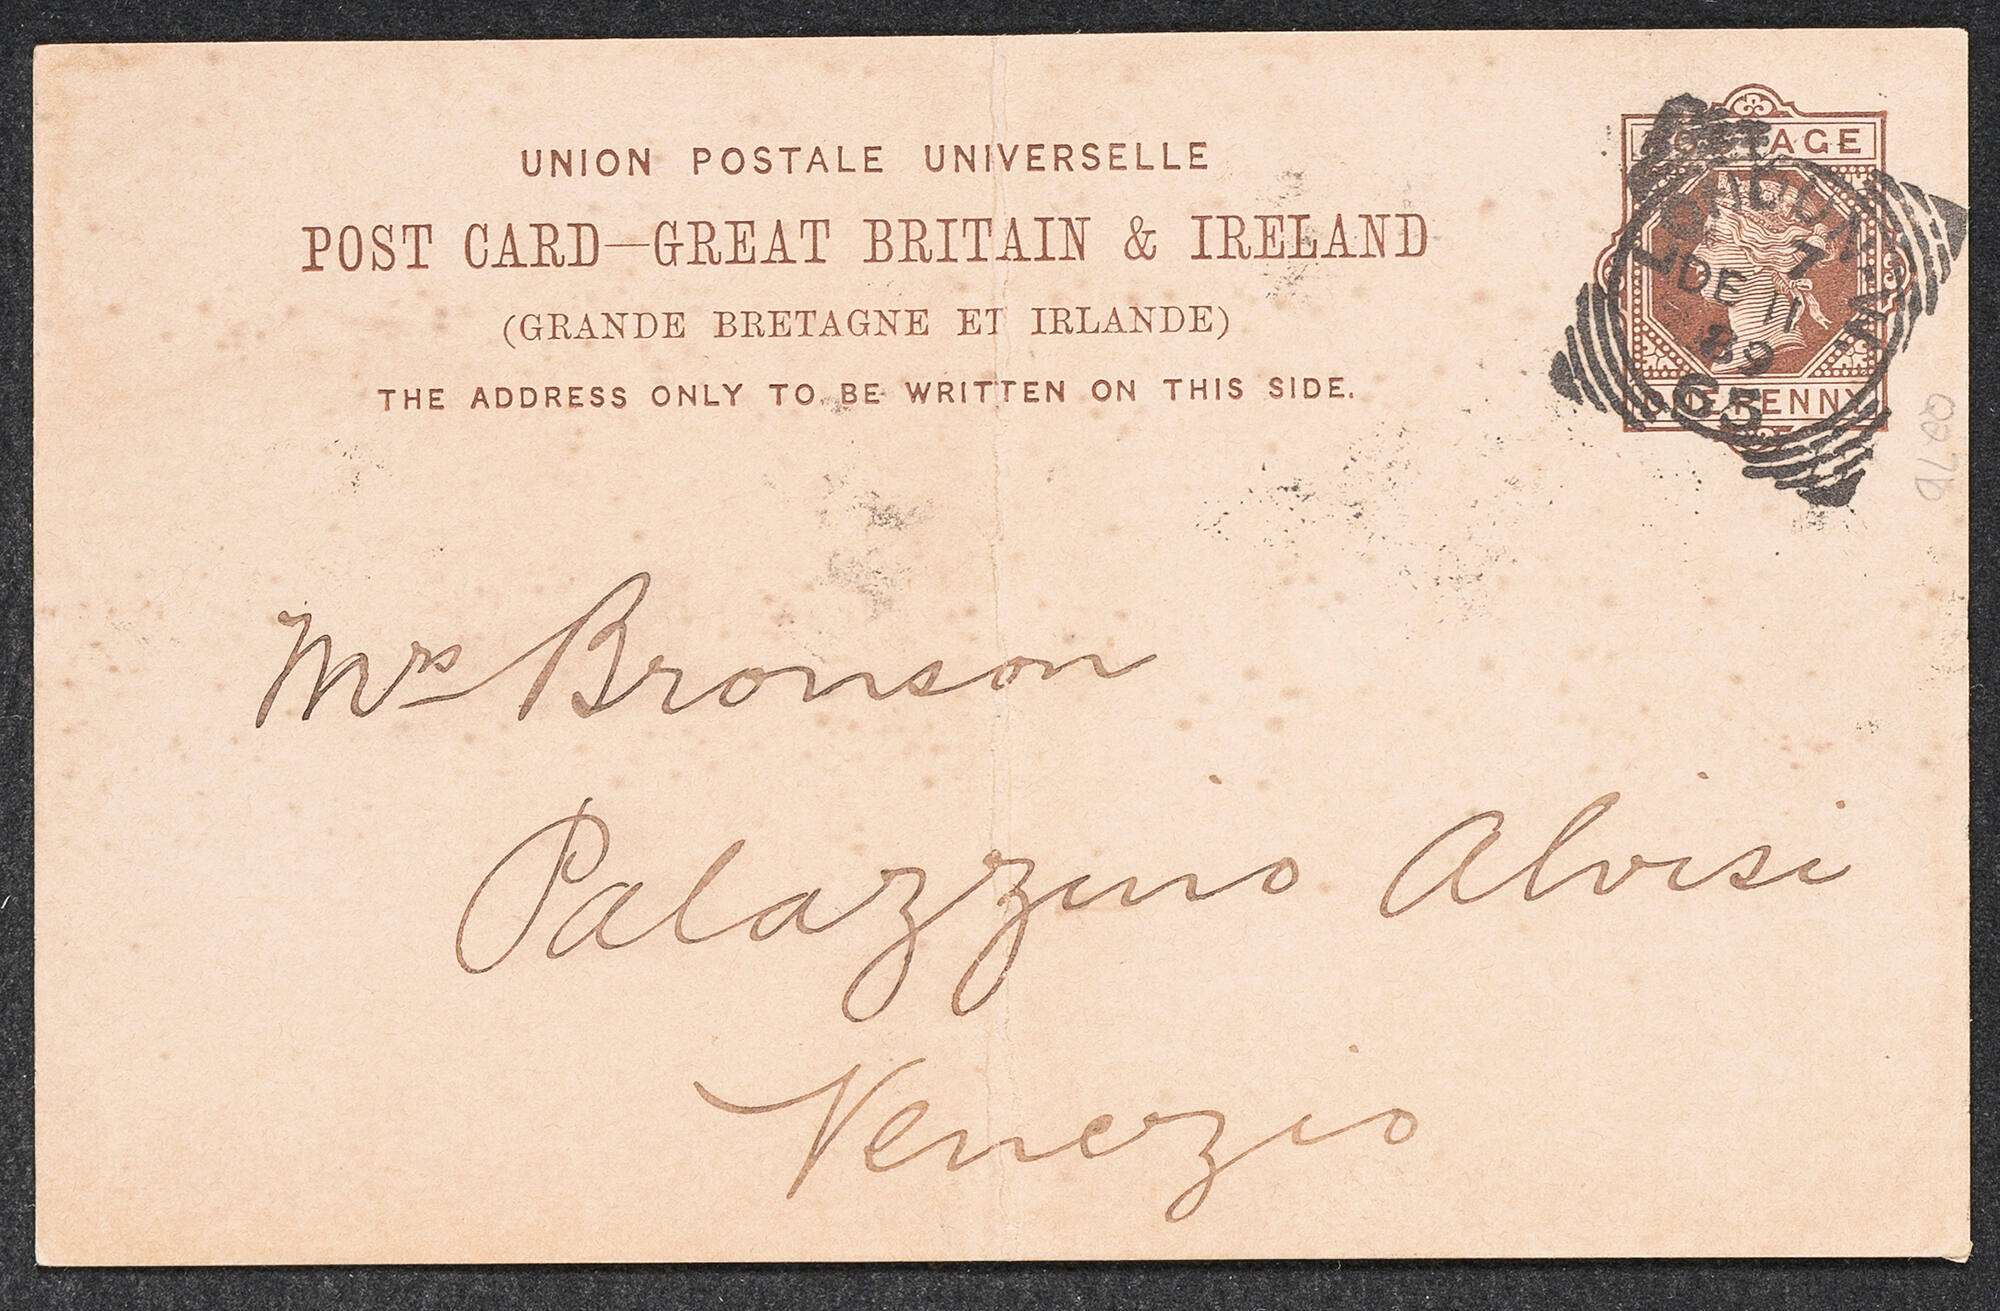 UNION POSTALE UNIVERSELLE
POST CARD—GREAT BRITAIN & IRELAND
(GRANDE BRETAGNE ET IRLANDE)
THE ADDRESS ONLY TO BE WRITTEN ON THIS SIDE.
POSTAGE
ONE PENNY
LONDON. W
7
DE 11
89
65
Mrs Bronson
Palazzino Alvisi
Venezio